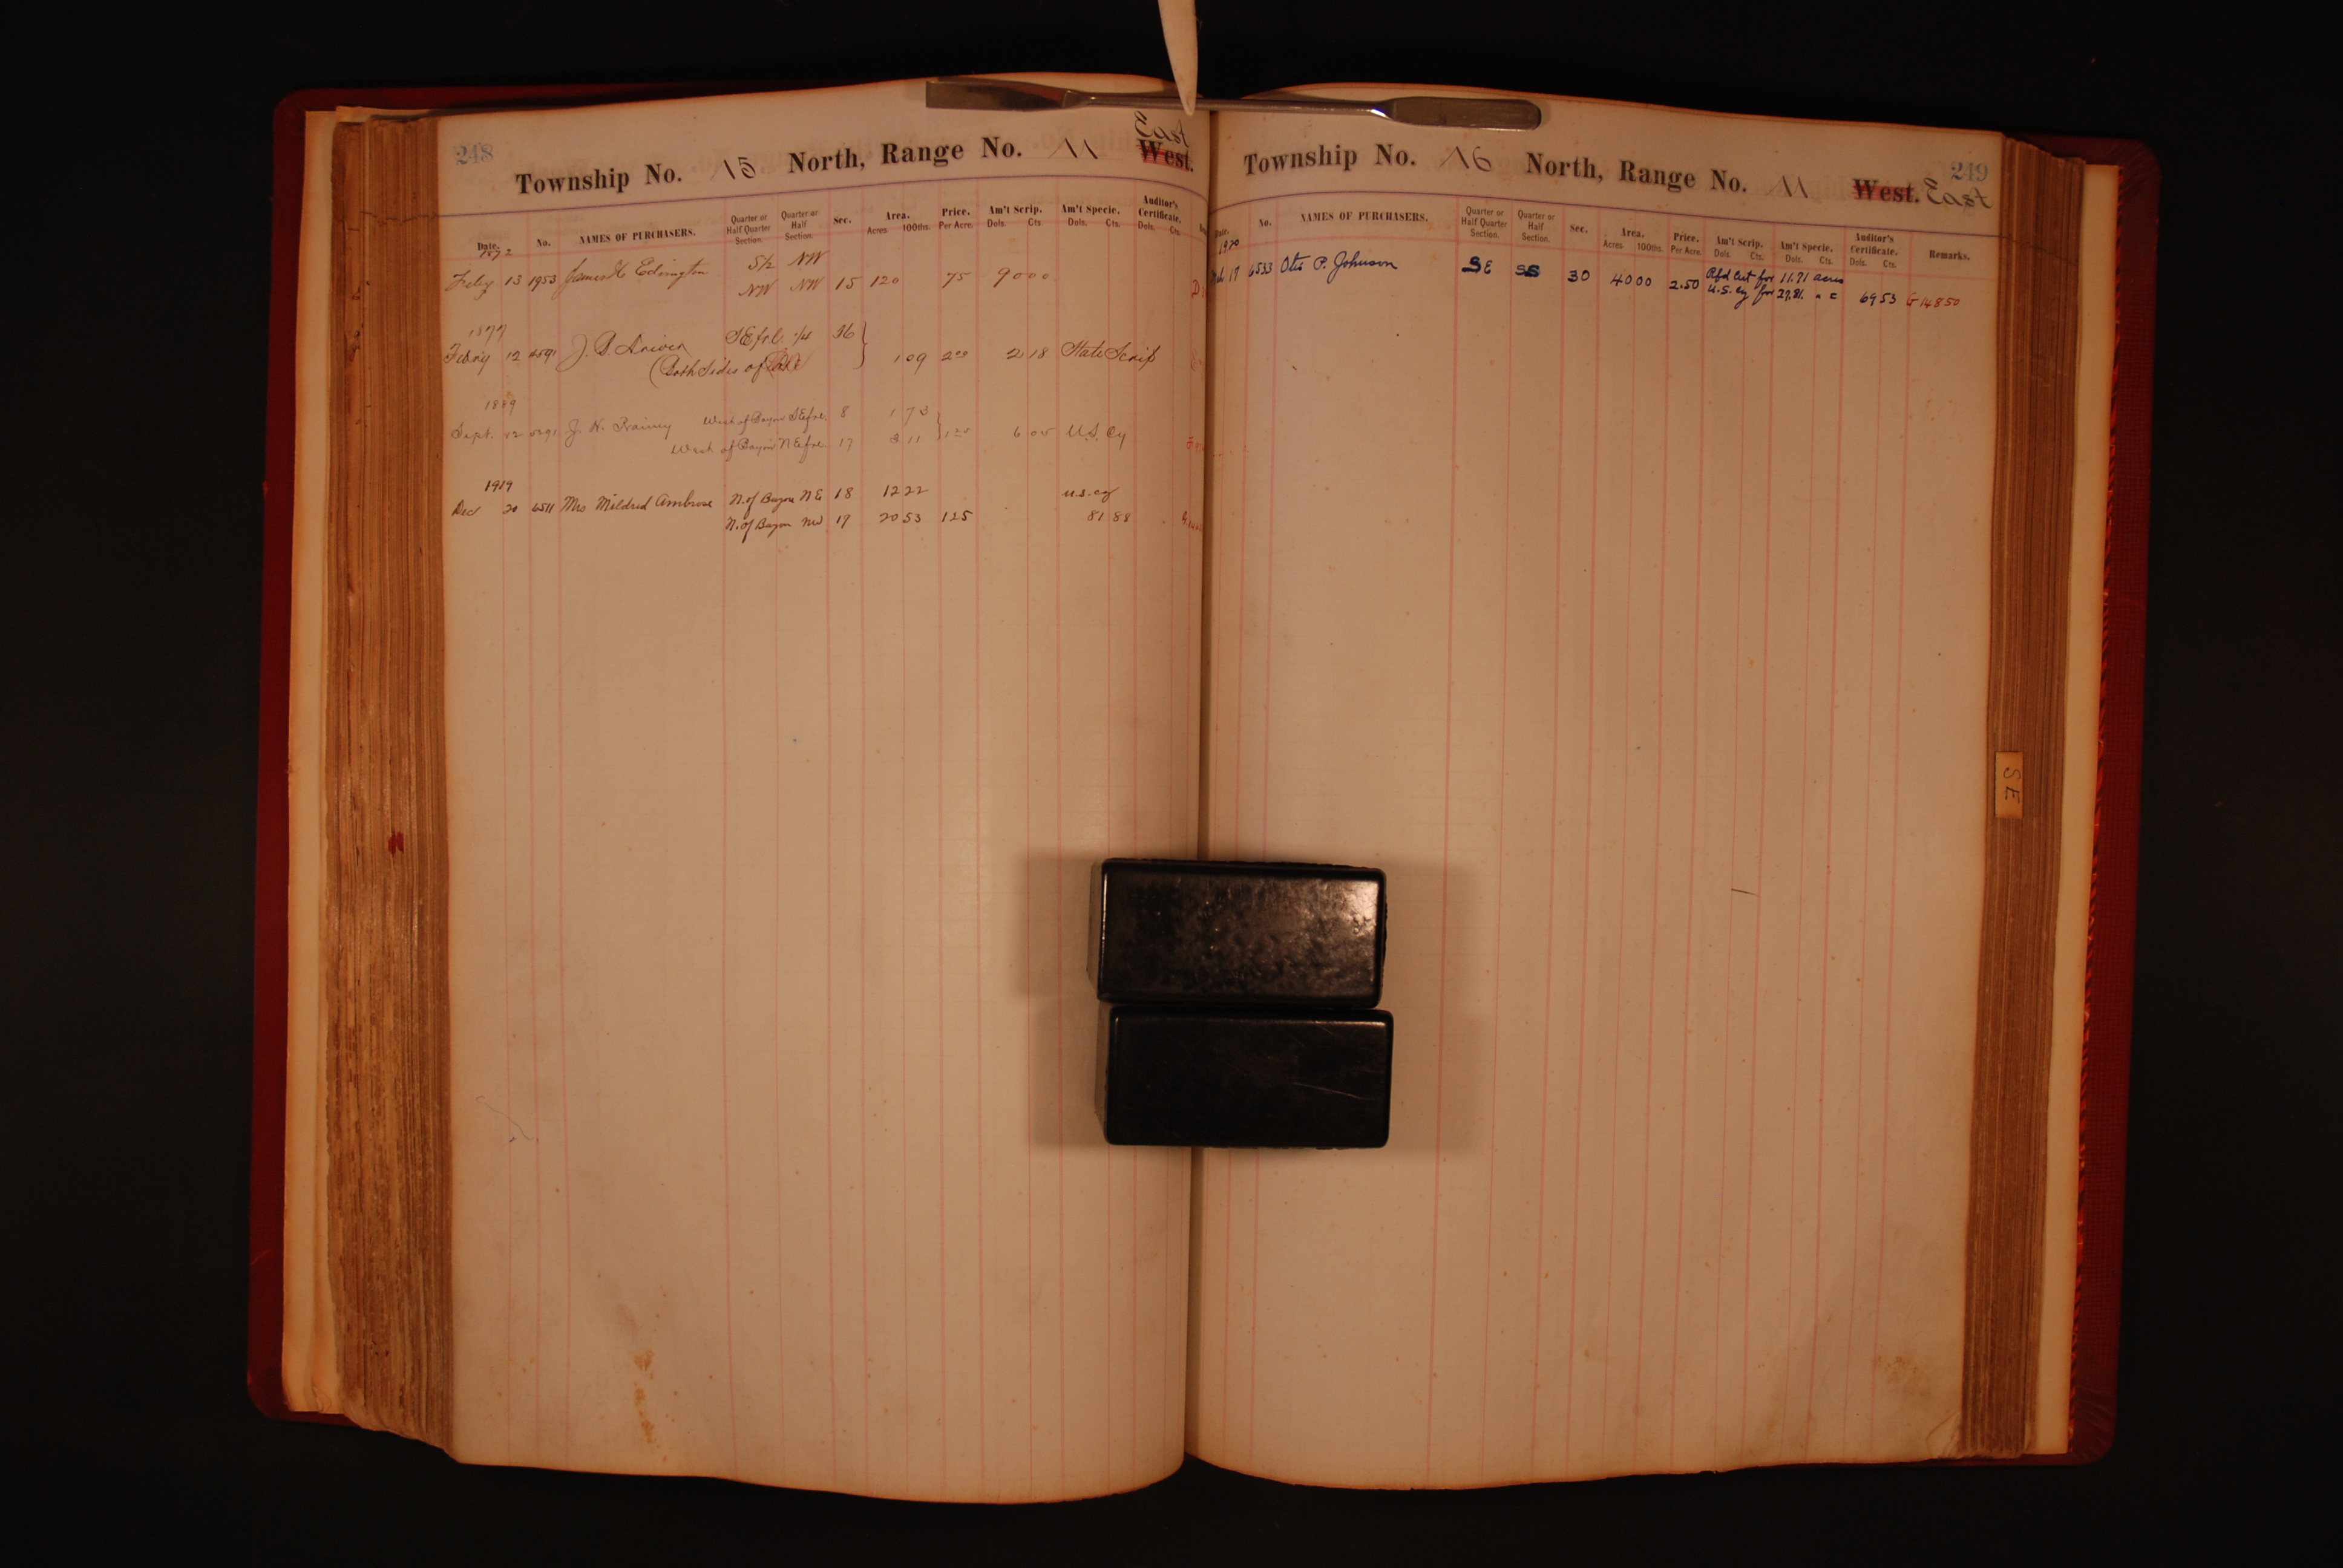 248
East
Township No. 15 North, Range No. 11 West.
Date. No. NAMES OF PURCHASERS. Quarter or Half Quarter Section. Quarter or Half Section. Sec. Area. Acres 100ths. Price. Per Acre. Am't Scrip. Dols. Cts. Am't Specie. Dols. Cts. Auditor's Certificate. Dols. Cts.
1872
S½ NW
Feby 13 1953 James H Edrington NW NW 15 120 75 90 00
1877
SE frl. ¼ 36
Febry 12 J. D. Driver 109 2 00 218 State Scrip
(Both Sides of
1889
Sept. 12 J. K. Rainey West of Bayou SE frl. 8 1 73
West of Bayou NE frl 17 3 11 1 25 6 05 U.S. Cy
1919
Dec 20 6511 Mrs Mildred Ambrose N. of Bayou NE 18 12 22 U.S. Cy
N. of Bayou NW 17 20 53 125 81 88
249
Township No. 16 North, Range No. 11 West. East
Date. No. NAMES OF PURCHASERS. Quarter or Half Quarter Section. Quarter or Half Section. Sec. Area. Acres 100ths. Price. Per Acre. Am't Scrip. Dols. Cts. Am't Specie. Dols. Cts. Auditor's Certificate. Dols. Cts. Remarks.
1920
17 6533 Otis P. Johnson SE 30 40 00 2.50 Rfd Cert for 11.71 acres
U.S. Cy for 27.81 " = 69 53 G 14850
SE